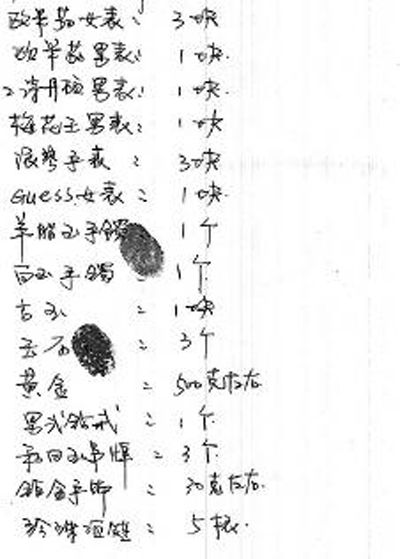 欧米茄女表: 3块
欧米茄男表: 1块.
男表: 1块
梅花王男表: 1块
浪琴手表: 3块
Guess女表: 1块
羊脂玉手镯 1个
白玉手镯 1个
古玉 : 1块
玉石 : 3个
黄金 : 500克左右
男式钻戒: 1个
和田玉吊牌: 3个
铂金手饰: 30克左右.
珍珠项链: 5根.